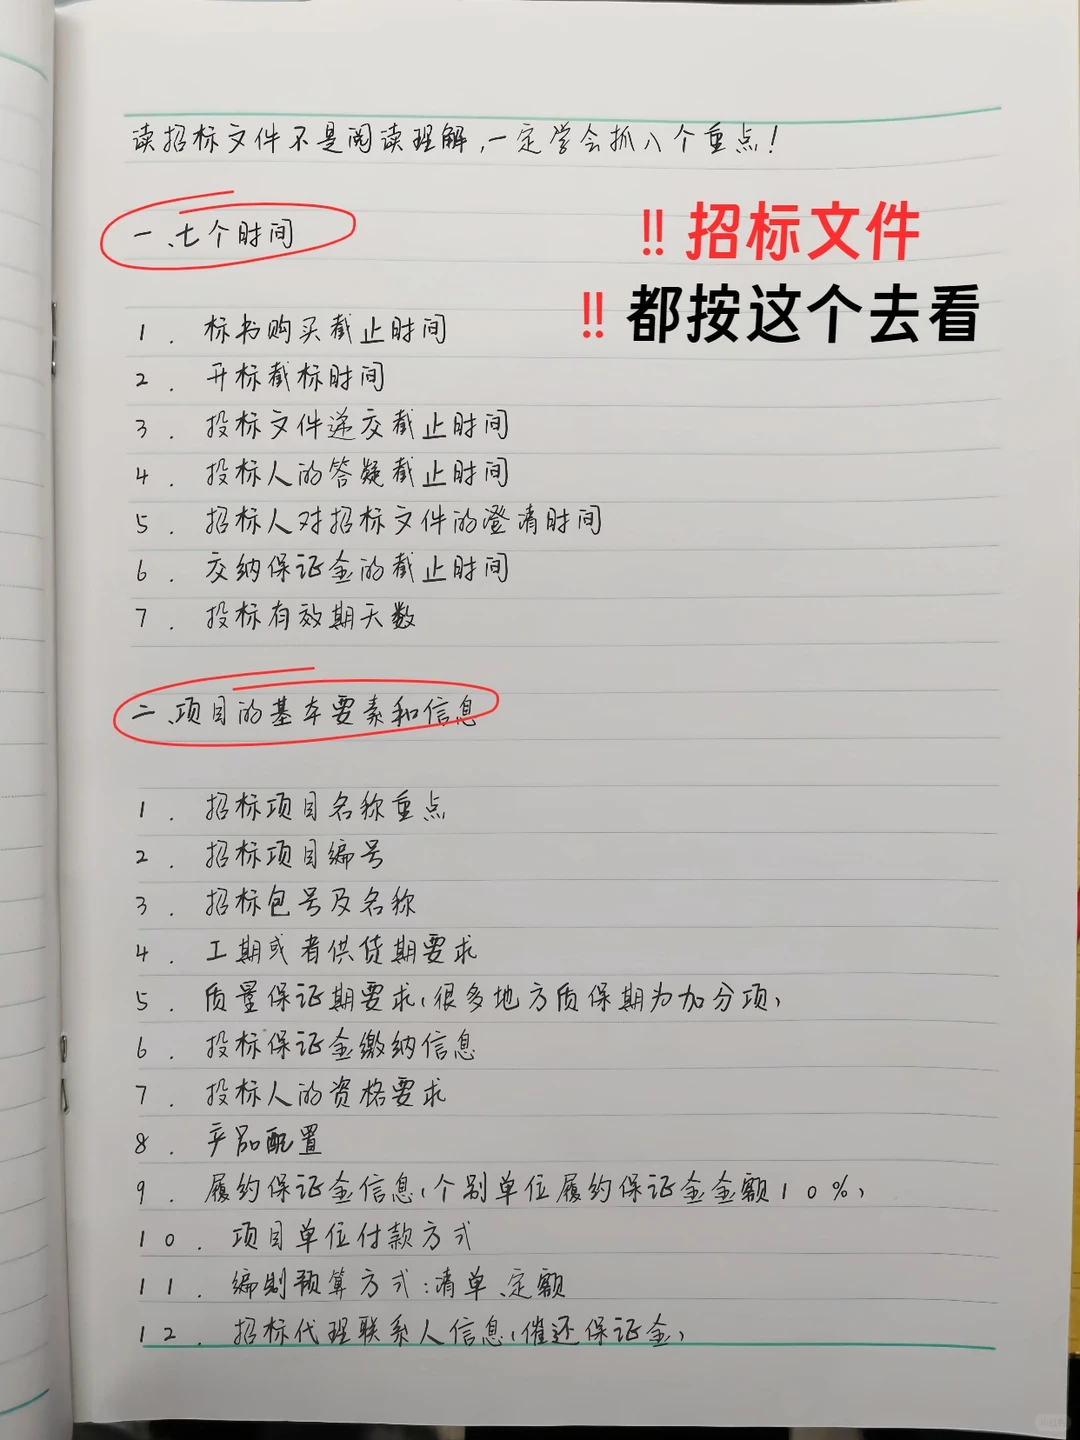 读招标文件不是阅读理解,一定学会抓八个重点!
一、七个时间
!! 招标文件
!! 都按这个去看
1. 标书购买截止时间
2. 开标截标时间
3. 投标文件递交截止时间
4. 投标人的答疑截止时间
5. 招标人对招标文件的澄清时间
6. 交纳保证金的截止时间
7. 投标有效期天数
二、项目的基本要素和信息
1. 招标项目名称重点
2. 招标项目编号
3. 招标包号及名称
4. 工期或者供货期要求
5. 质量保证期要求(很多地方质保期为加分项)
6. 投标保证金缴纳信息
7. 投标人的资格要求
8. 产品配置
9. 履约保证金信息(个别单位履约保证金金额10%)
10. 项目单位付款方式
11. 编制预算方式:清单、定额
12. 招标代理联系人信息(催还保证金)